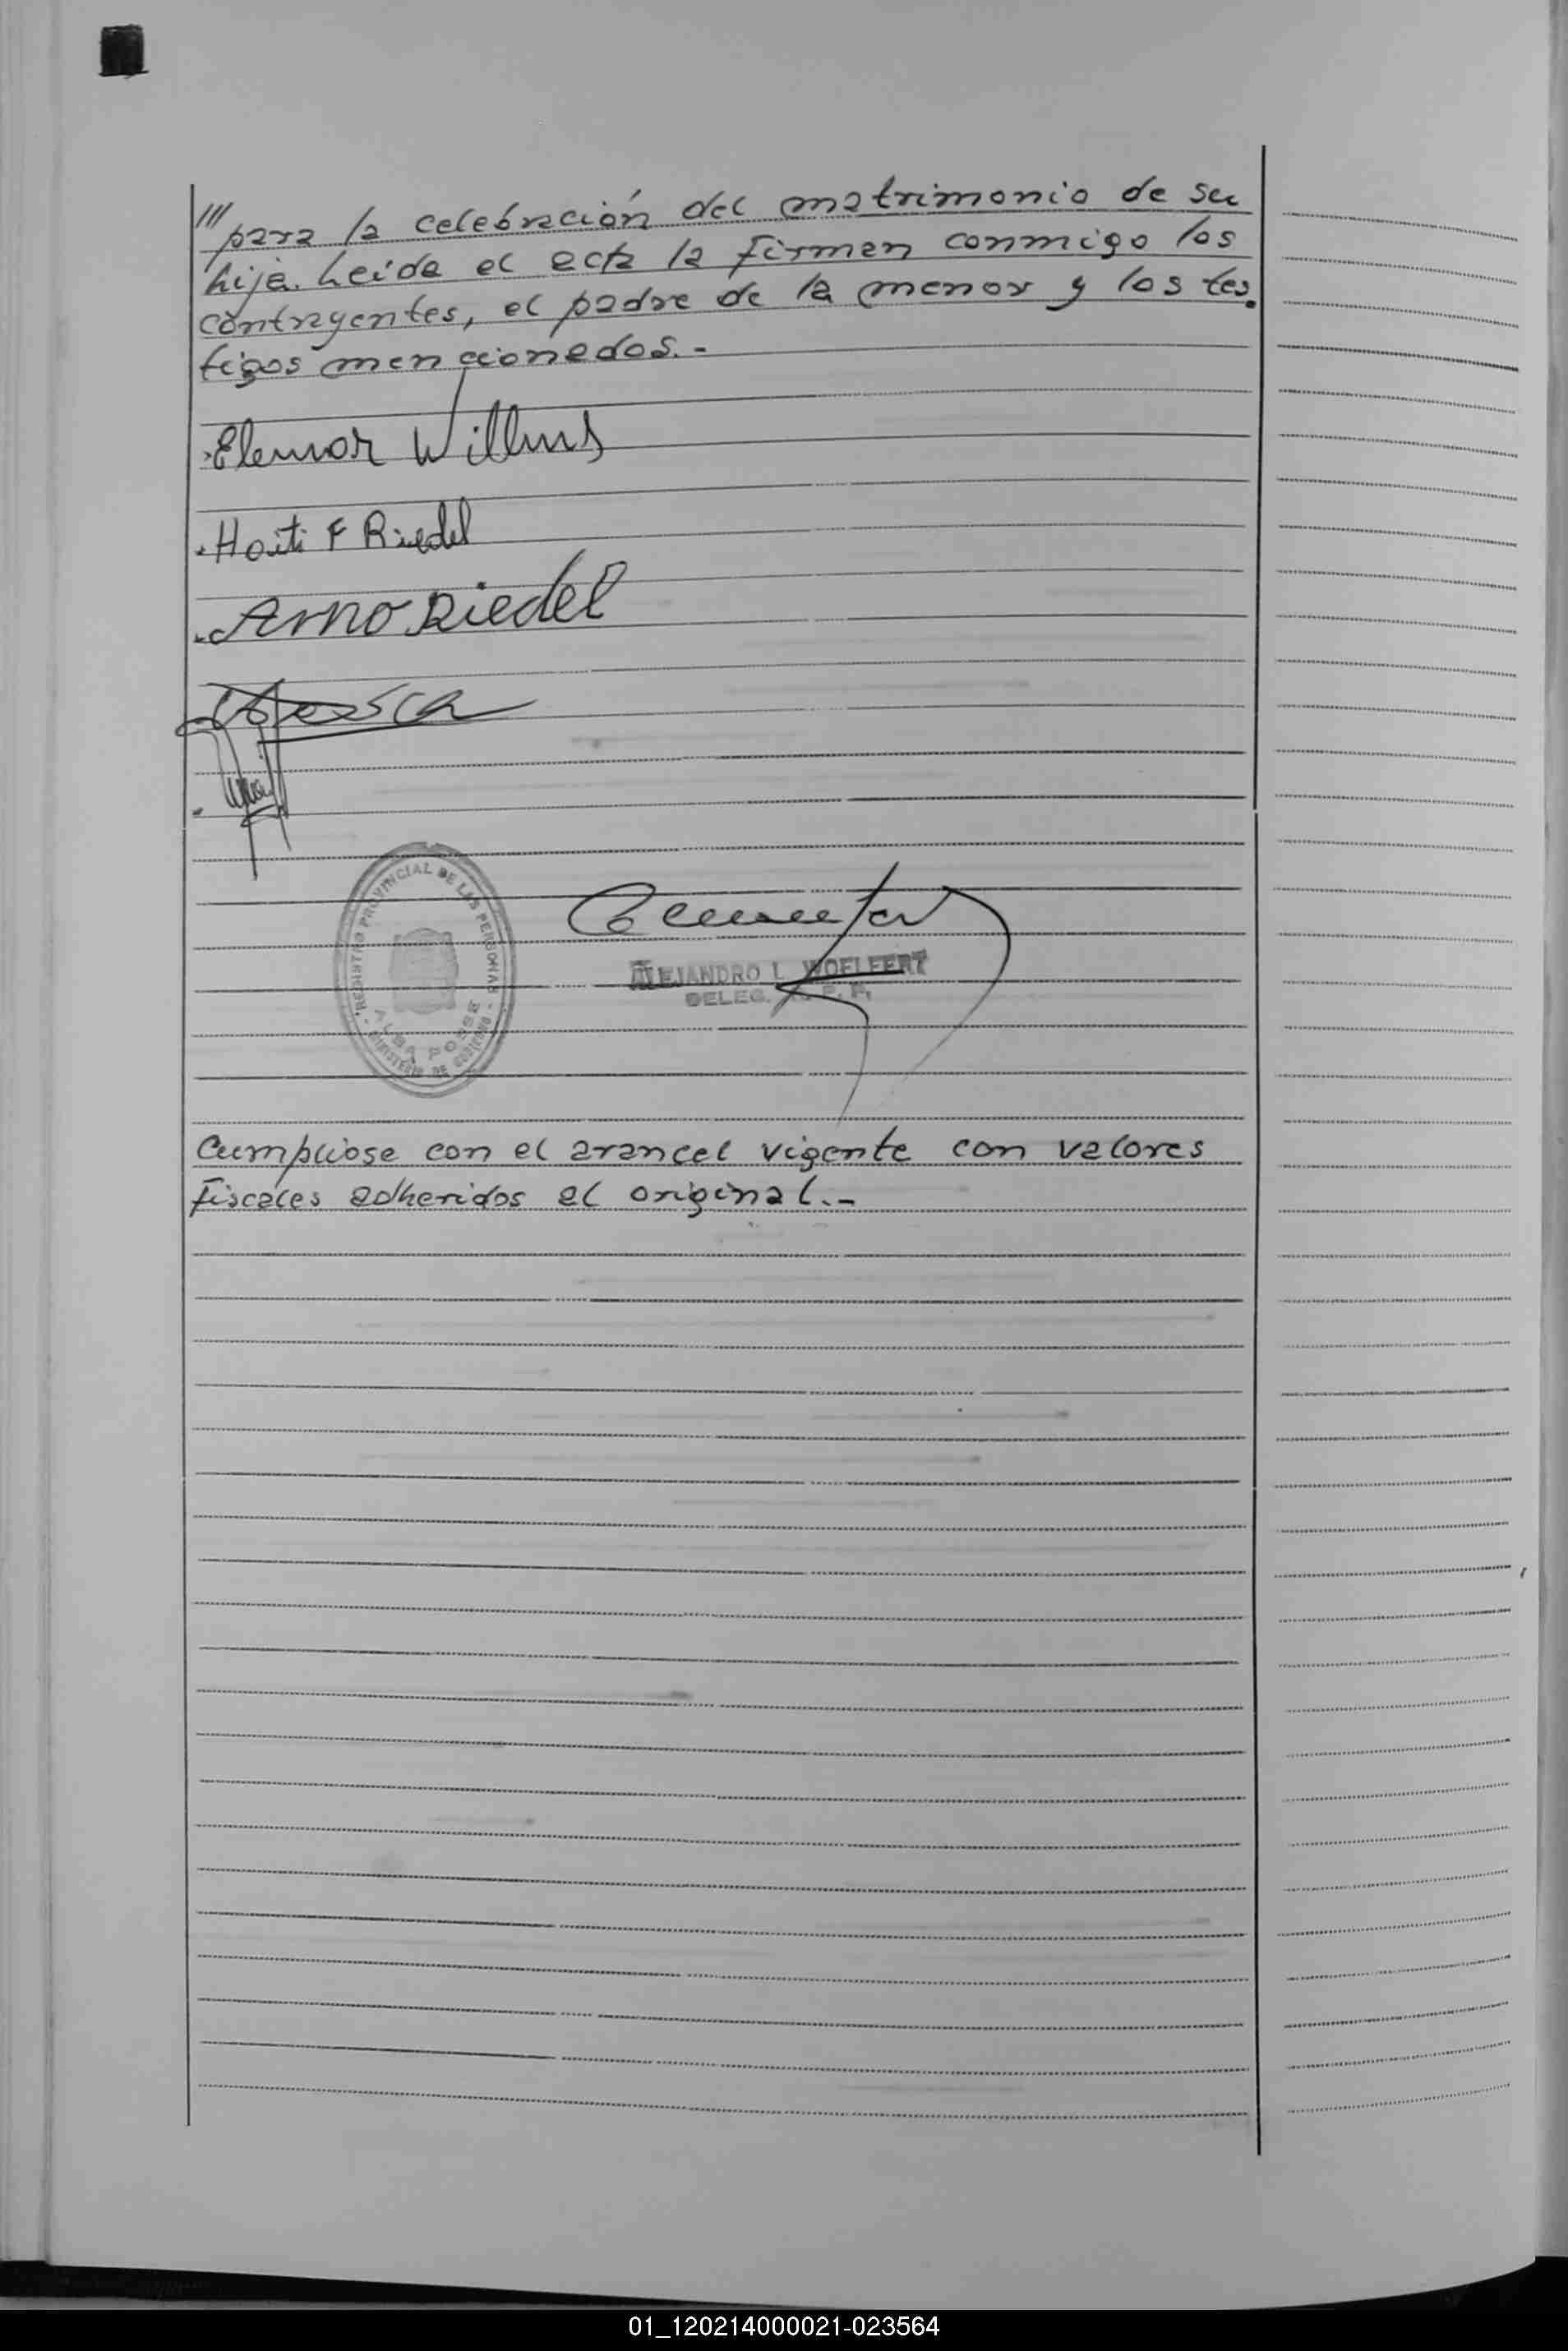 /// para la celebración del matrimonio de su
hija. Leída el acta la firman conmigo los
contrayentes, el padre de la menor y los tes.
tigos mencionados.-
Elemor Willms
Haiti F Riedel
Arno Riedel
REGISTRO PROVINCIAL DE LAS PERSONAS
ALBA POSSE
MINISTERIO DE GOBIERNO
ALEJANDRO L. WOELFERT
DELEG. R. P. P.
Cumpliose con el arancel vigente con valores
fiscales adheridos al original.-
01_120214000021-023564